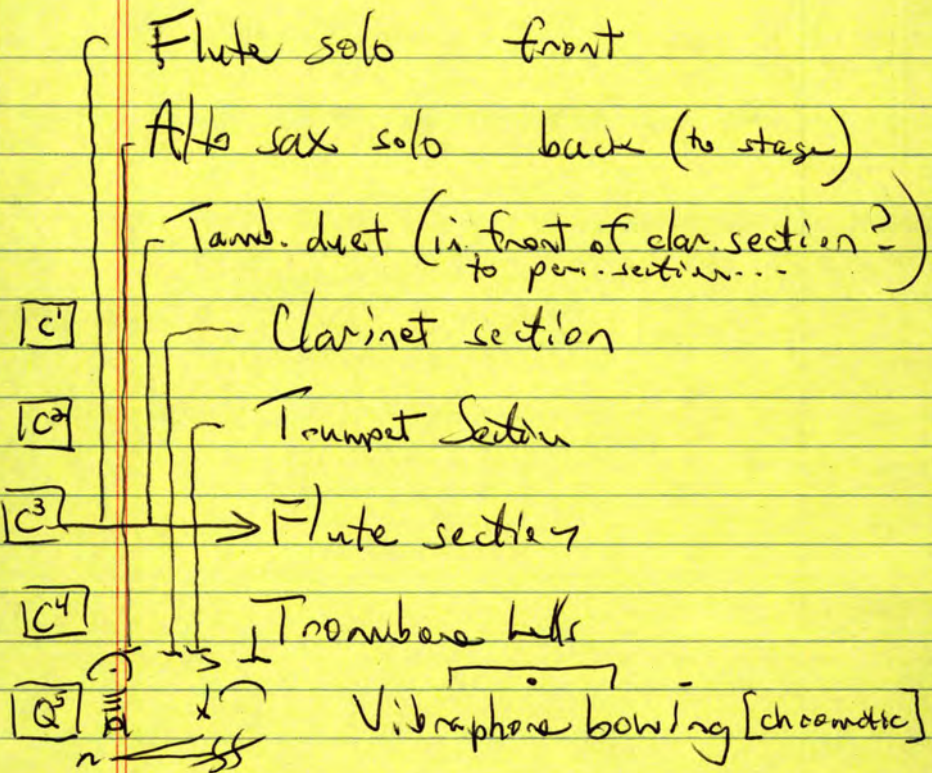 Flute solo front
Alto sax solo back (to stage)
Tamb. duet (in front of clar. section?
to perc. section...)
C1 Clarinet section
C2 Trumpet Section
C3 Flute section
C4 Trombone bells
Q5 Vibraphone bowing [chromatic]